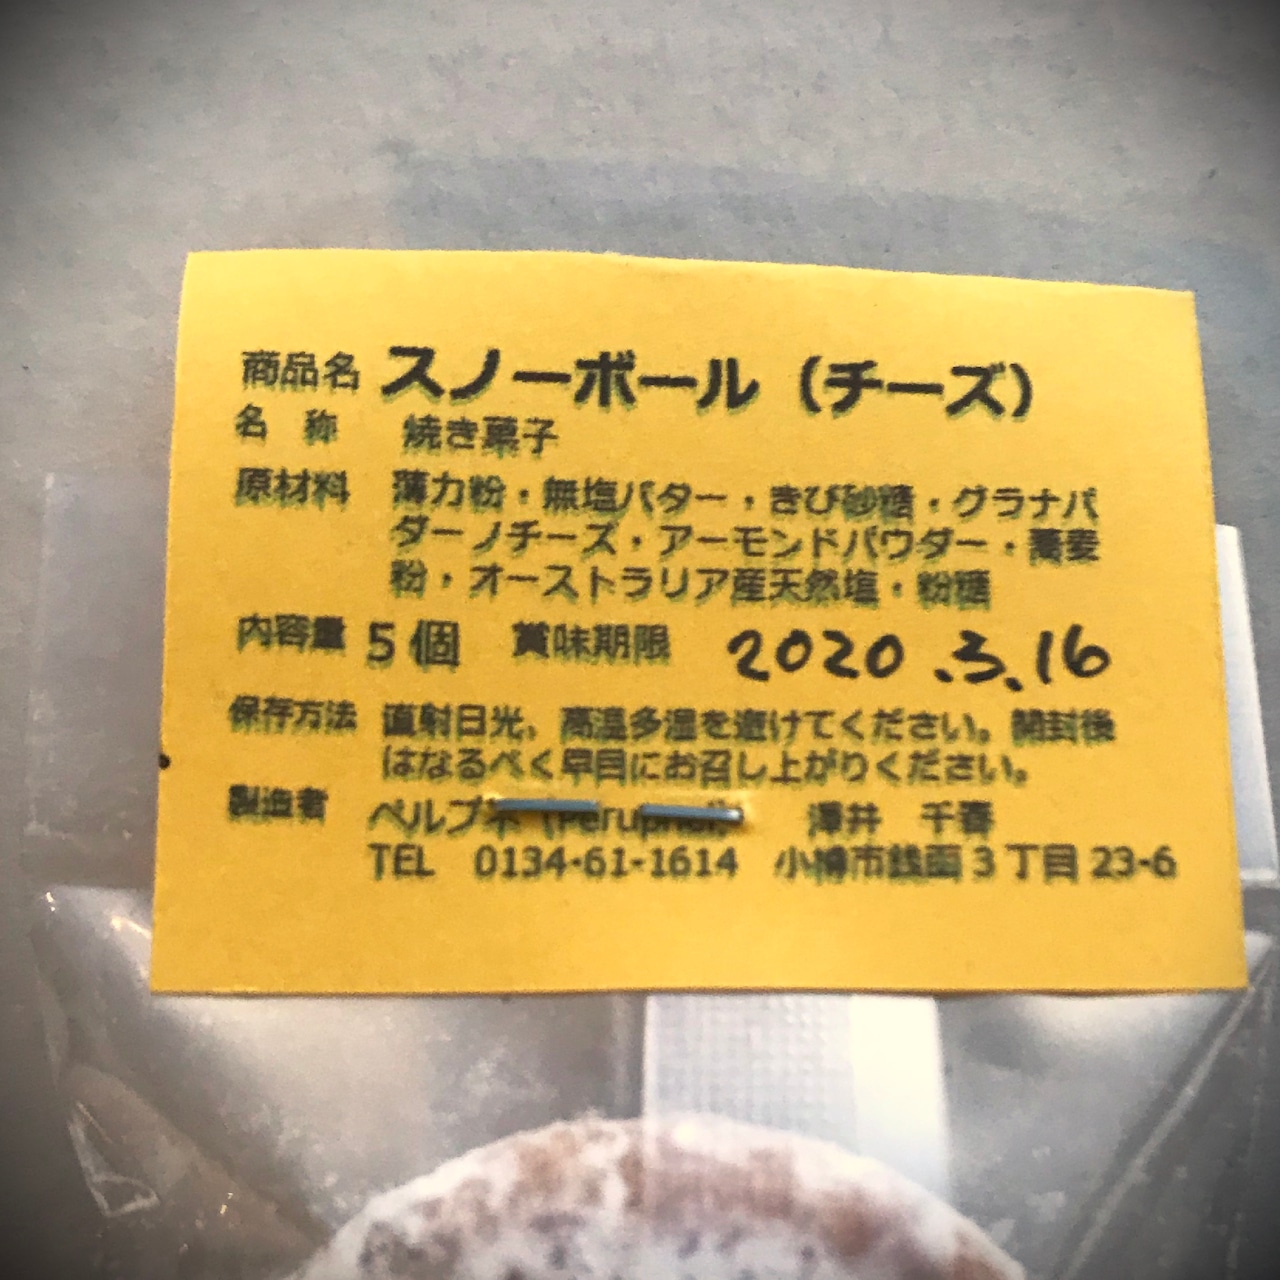 商品名 スノーボール（チーズ）
名 称 焼き菓子
原材料 薄力粉・無塩バター・きび砂糖・グラナパ
ダーノチーズ・アーモンドパウダー・蕎麦
粉・オーストラリア産天然塩・粉糖
内容量 5個 賞味期限 2020.3.16
保存方法 直射日光、高温多湿を避けてください。開封後
はなるべく早目にお召し上がりください。
製造者 ペルプネ 澤井 千春
TEL 0134-61-1614 小樽市銭函3丁目23-6